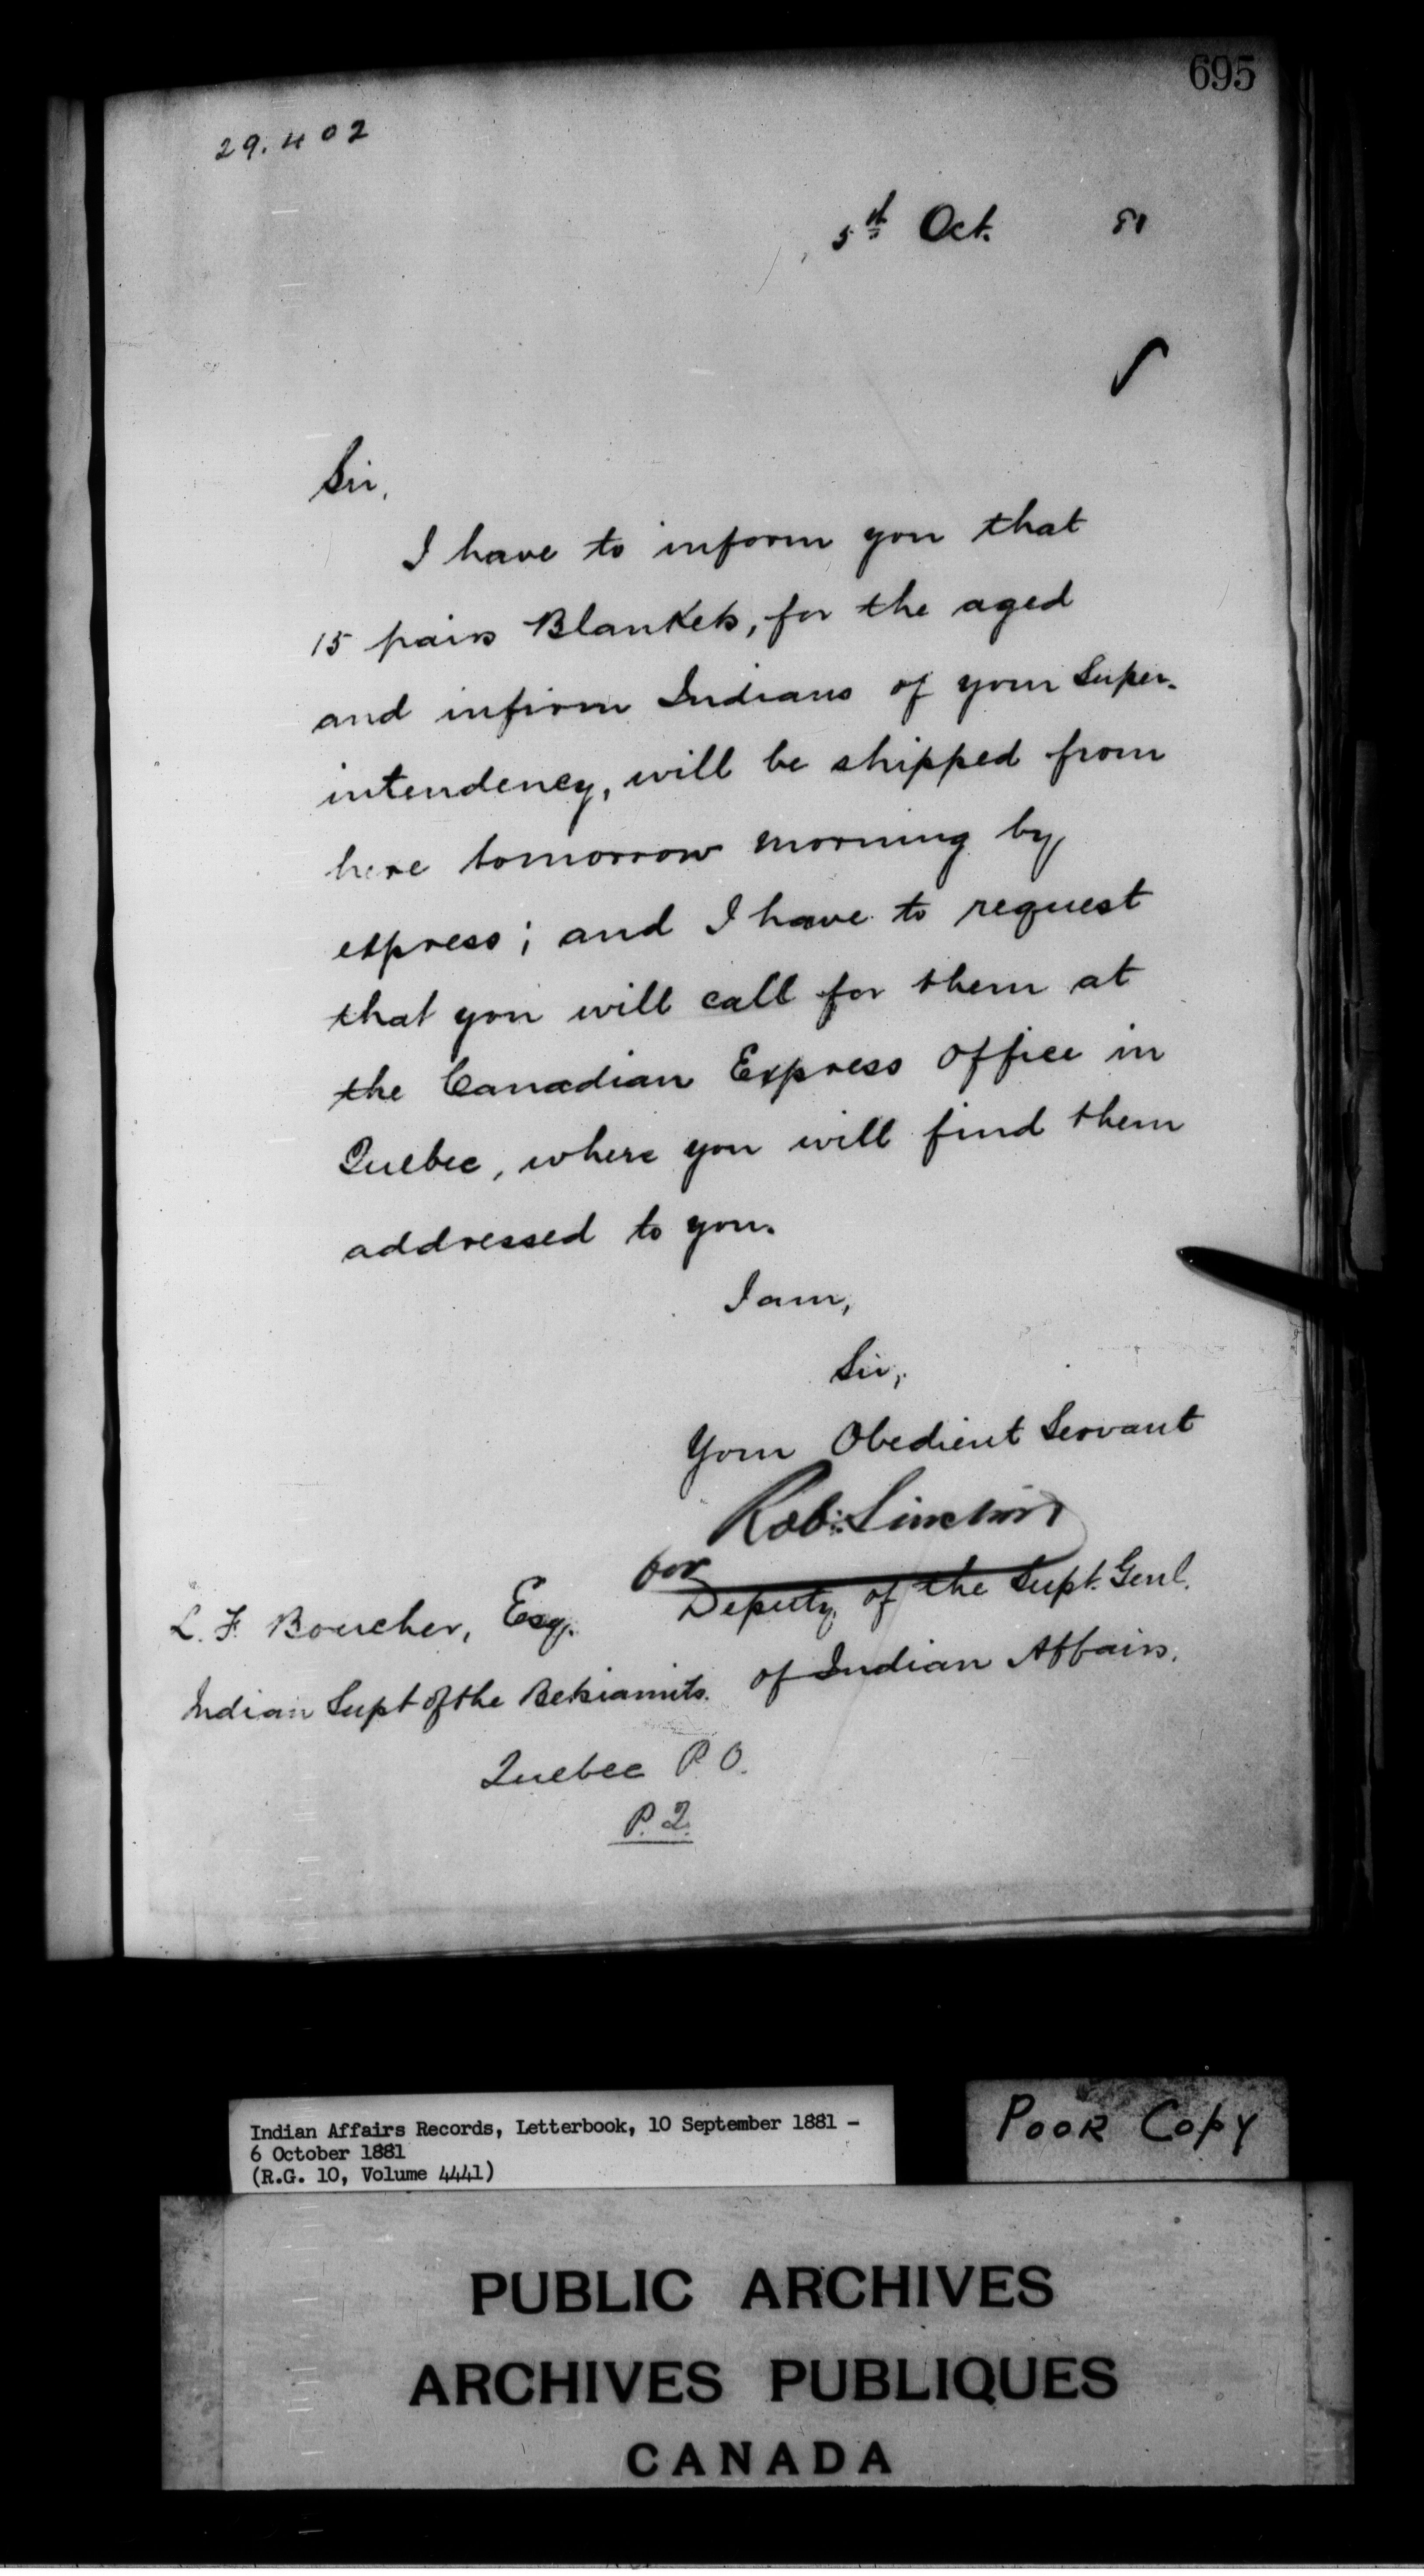 695
29.402
5th Oct. 81
Sir,
I have to inform you that
15 pairs Blankets, for the aged
and infirm Indians of your Super-
intendency, will be shipped from
here tomorrow morning by
express; and I have to request
that you will call for them at
the Canadian Express Office in
Quebec, where you will find them
addressed to you.
I am,
Sir,
Your Obedient Servant
Rob: Sinclair
for
Deputy of the Supt. Genl.
of Indian Affairs.
L. F. Boucher, Esq.
Indian Supt of the Betsiamits.
Quebec P. O.
P. Q.
Indian Affairs Records, Letterbook, 10 September 1881 -
6 October 1881
(R.G. 10, Volume 4441)
POOR COPY
PUBLIC ARCHIVES
ARCHIVES PUBLIQUES
CANADA